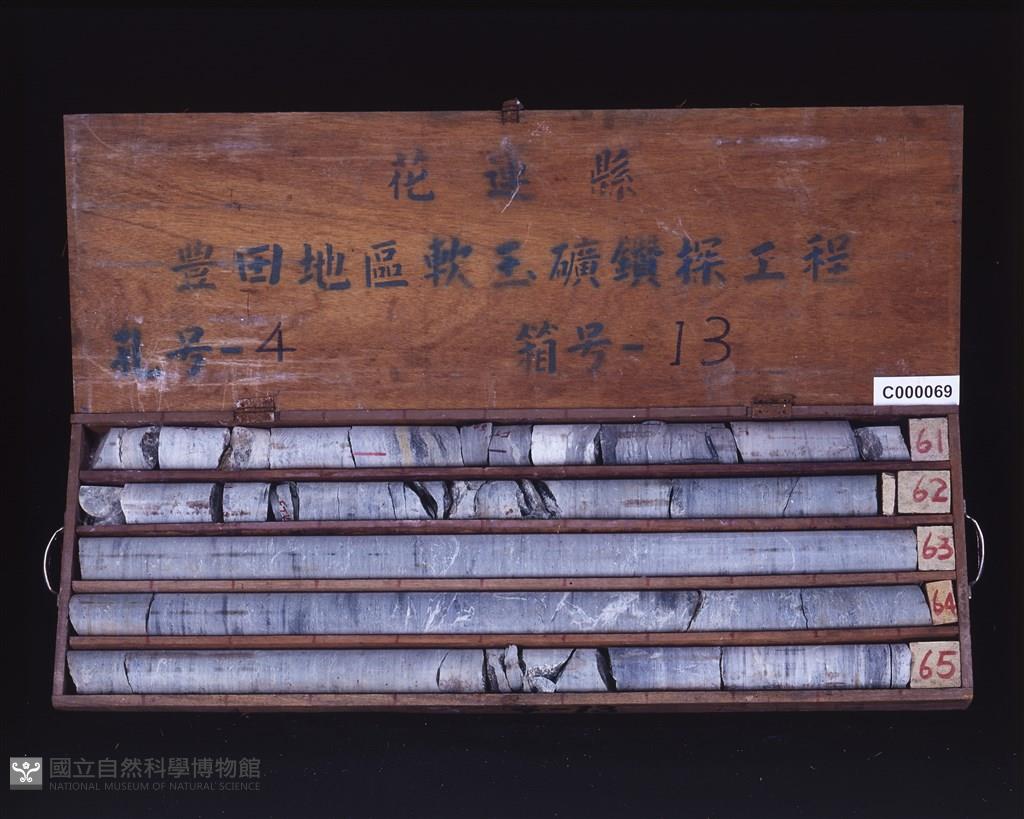 花蓮縣
豐田地區軟玉礦鑽探工程
孔号-4 箱号-13
C000069
61
62
63
64
65
國立自然科學博物館
NATIONAL MUSEUM OF NATURAL SCIENCE